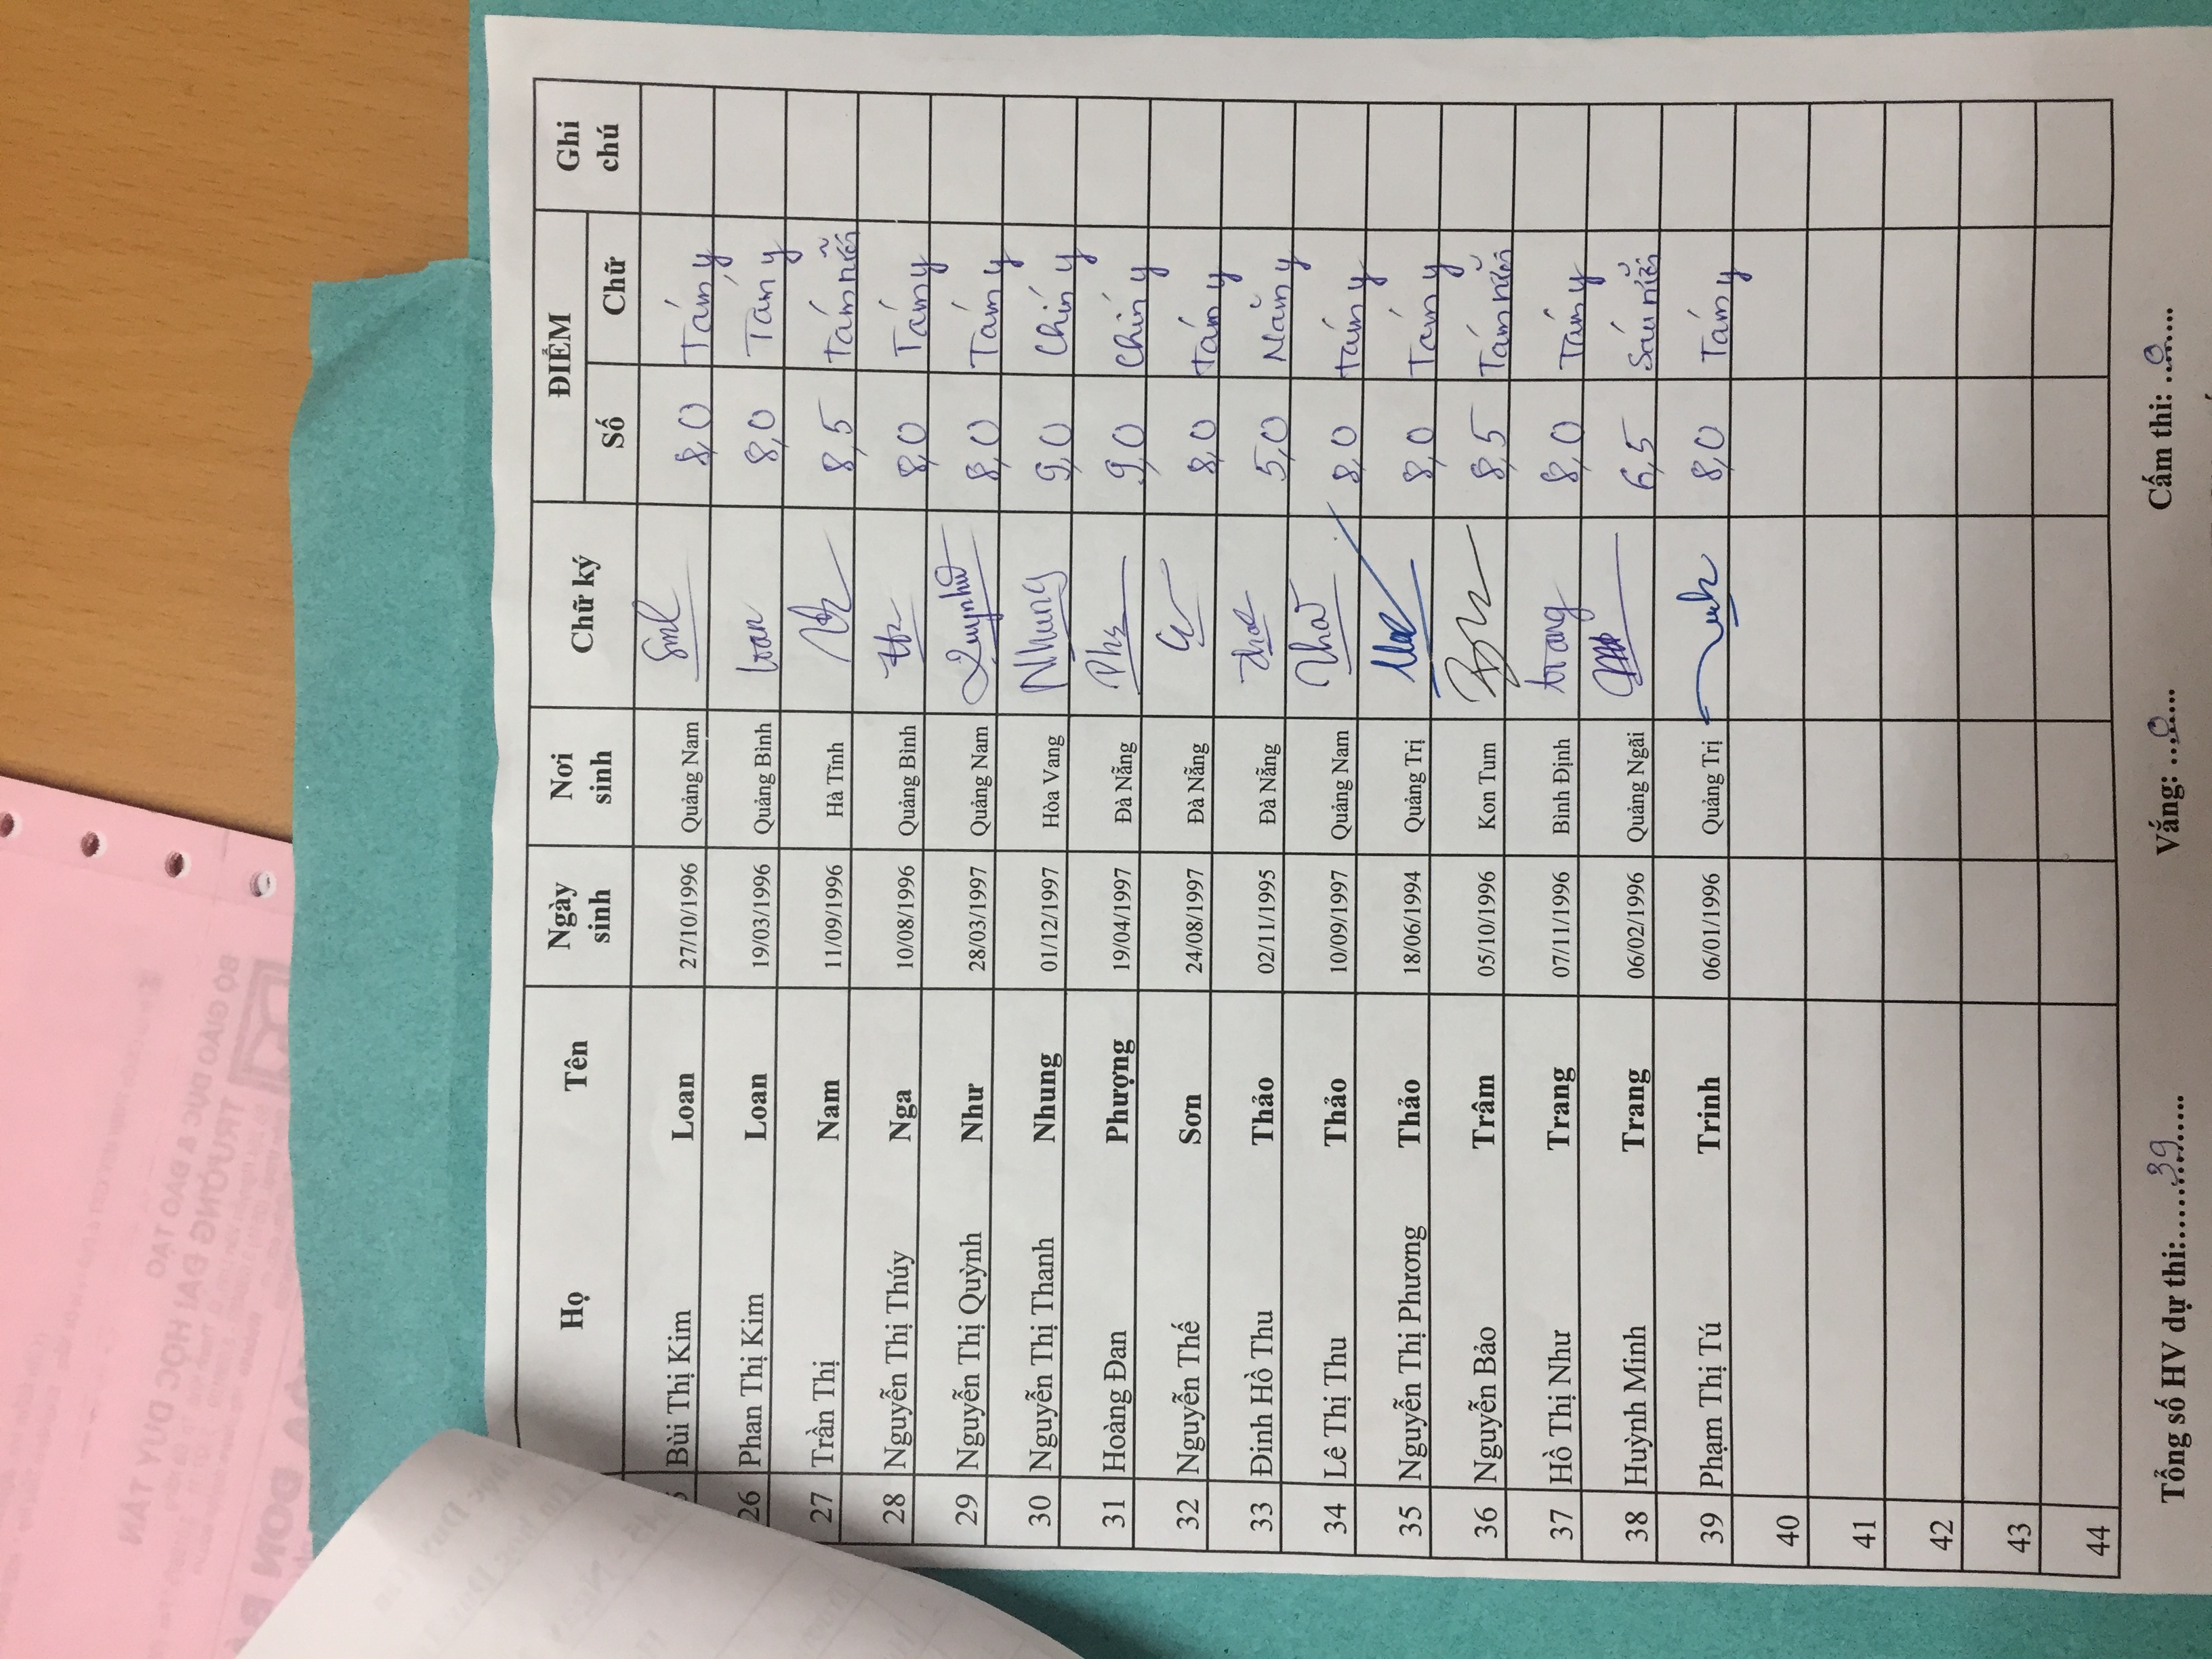 Họ Tên Ngày sinh Nơi sinh Chữ ký ĐIỂM Ghi chú
Số Chữ
Bùi Thị Kim Loan 27/10/1996 Quảng Nam 8,0 Tám y
26 Phan Thị Kim Loan 19/03/1996 Quảng Bình Loan 8,0 Tám y
27 Trần Thị Nam 11/09/1996 Hà Tĩnh 8,5 Tám rưỡi
28 Nguyễn Thị Thúy Nga 10/08/1996 Quảng Bình 8,0 Tám y
29 Nguyễn Thị Quỳnh Như 28/03/1997 Quảng Nam Quỳnh Như 8,0 Tám y
30 Nguyễn Thị Thanh Nhung 01/12/1997 Hòa Vang Nhung 9,0 Chín y
31 Hoàng Đan Phượng 19/04/1997 Đà Nẵng 9,0 Chín y
32 Nguyễn Thế Sơn 24/08/1997 Đà Nẵng 8,0 Tám y
33 Đinh Hồ Thu Thảo 02/11/1995 Đà Nẵng 5,0 Năm y
34 Lê Thị Thu Thảo 10/09/1997 Quảng Nam 8,0 Tám y
35 Nguyễn Thị Phương Thảo 18/06/1994 Quảng Trị 8,0 Tám y
36 Nguyễn Bảo Trâm 05/10/1996 Kon Tum 8,5 Tám rưỡi
37 Hồ Thị Như Trang 07/11/1996 Bình Định trang 8,0 Tám y
38 Huỳnh Minh Trang 06/02/1996 Quảng Ngãi 6,5 Sáu rưỡi
39 Phạm Thị Tú Trinh 06/01/1996 Quảng Trị 8,0 Tám y
40
41
42
43
44
Tổng số HV dự thi:.....39........ Vắng: ...0..... Cấm thi: ...0.....
BỘ GIÁO DỤC & ĐÀO TẠO
TRƯỜNG ĐẠI HỌC DUY TÂN